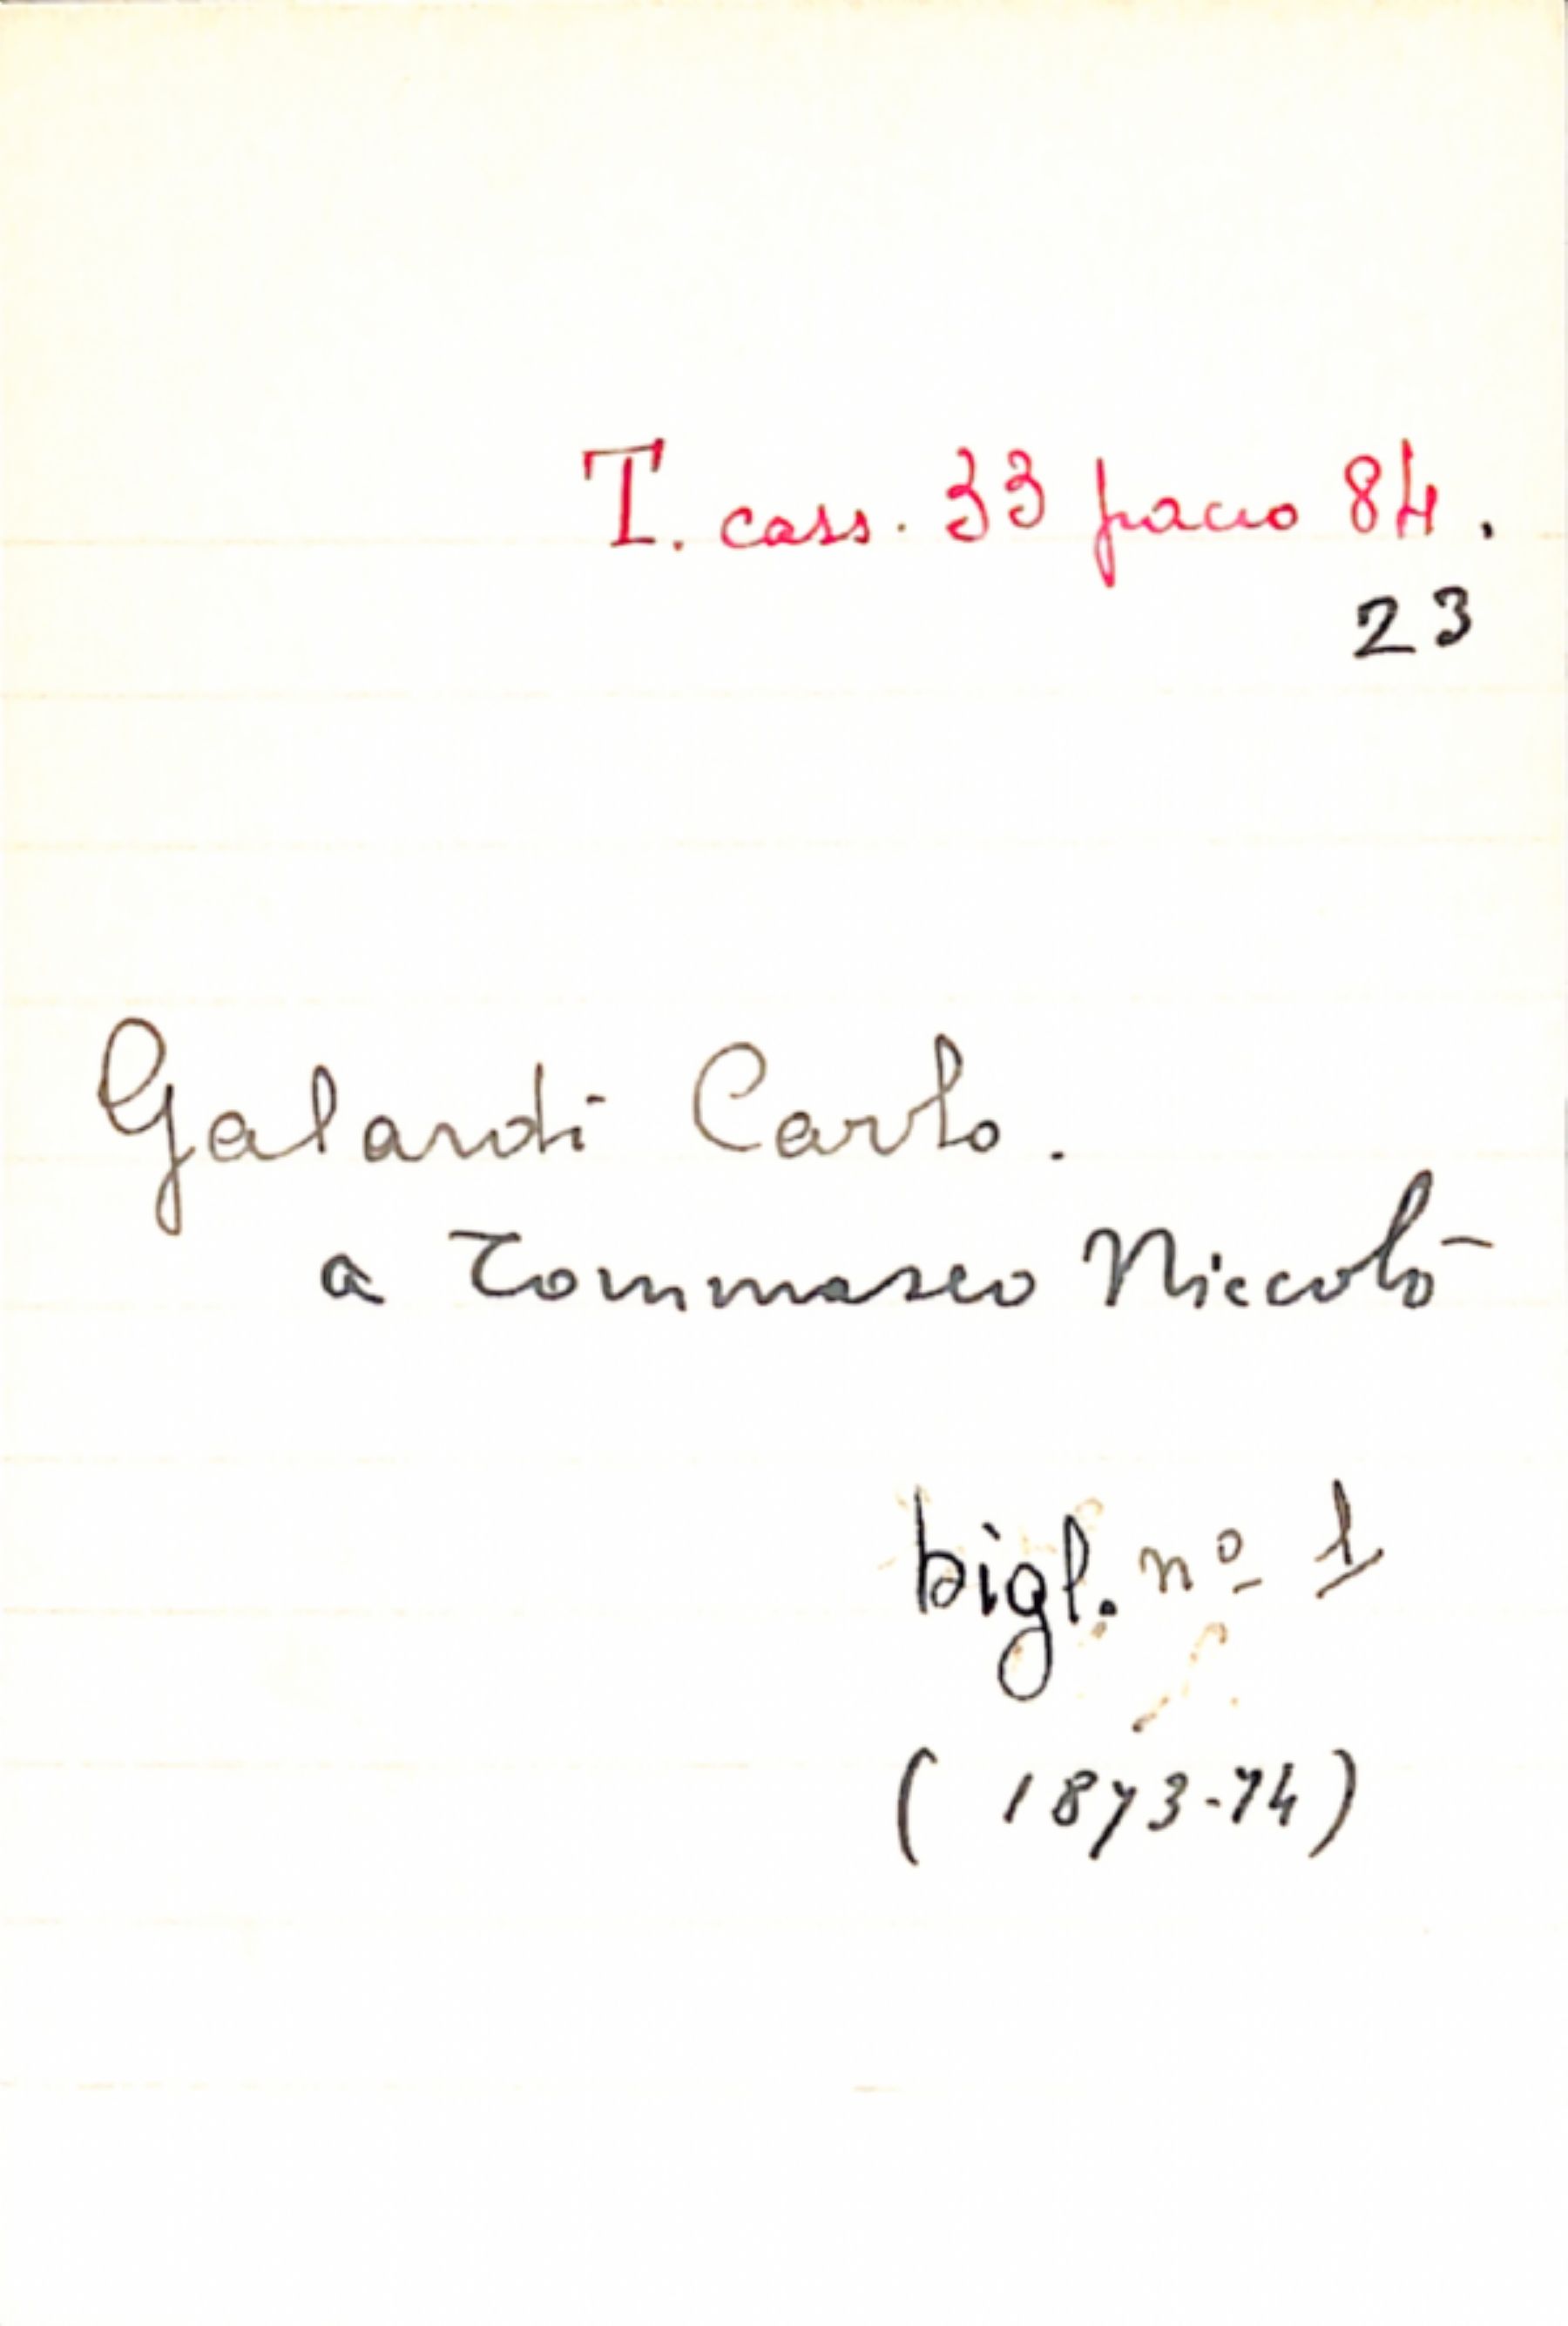 T. cass. 33 pacco 84.
23
Galardi Carlo.
a Tommaseo Niccolò
bigl. nº 1
( 1873-74)